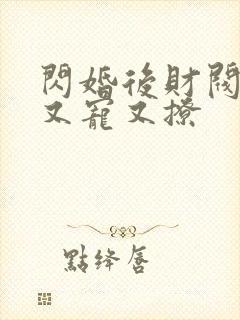 閃婚後財閥
又寵又撩
點絳唇